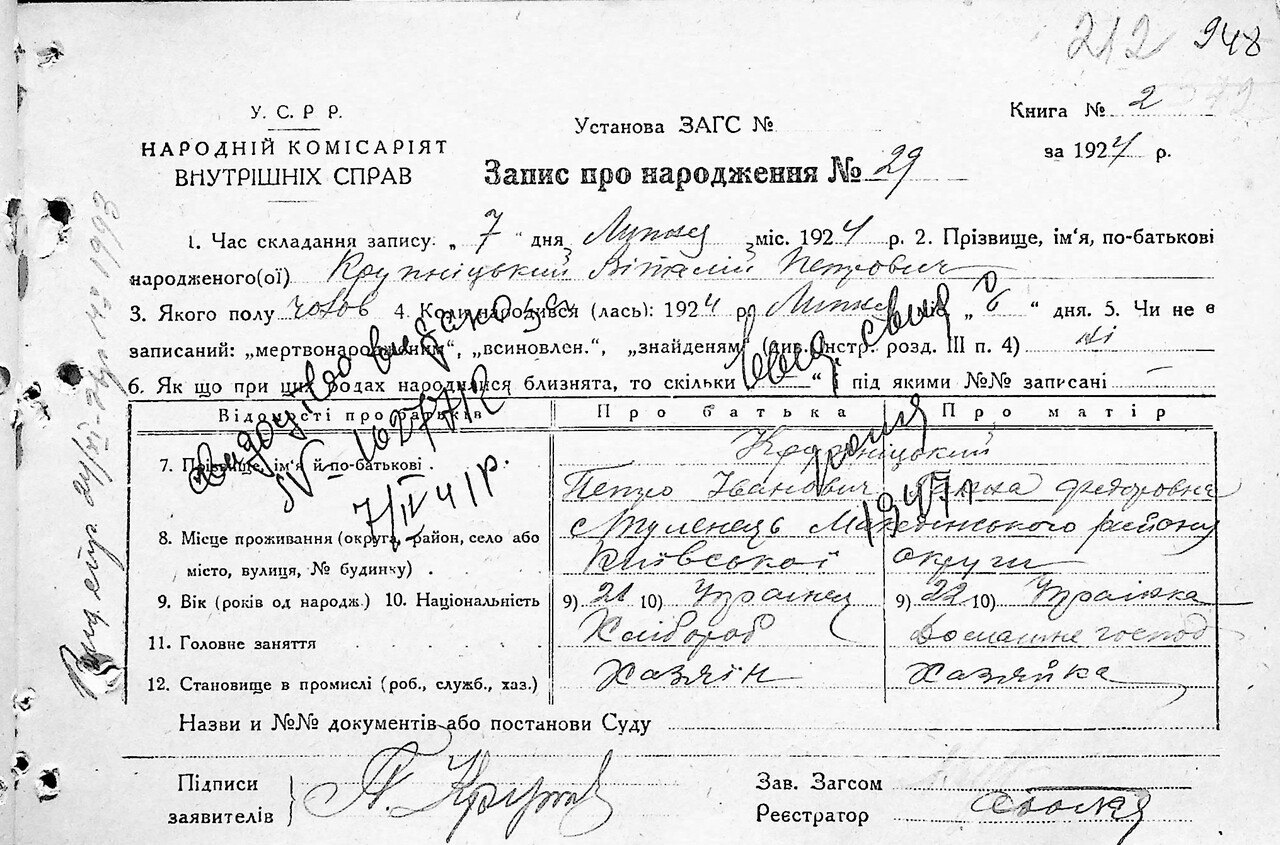 212 948
У. С. Р Р.
НАРОДНІЙ КОМІСАРІЯТ
ВНУТРІШНІХ СПРАВ
Установа ЗАГС №
Книга № 2
за 1924 р.
Запис про народження № 29
1. Час складання запису: „ 7 " дня Липня міс. 1924 р. 2. Прізвище, ім'я, по-батькові
народженого(ої) Крупніцький Віталій Петрович
3. Якого полу чолов 4. Коли народився (лась): 1924 р. Липня міс „ 6 " дня. 5. Чи не є
записаний: „мертвонародженим", „всиновлен.", „знайденям" (див. Інстр. розд. III п. 4) ні
6. Як що при цих родах народилися близнята, то скільки " і під якими №№ записані —
Відомості про батьків Про батька Про матір
7. Прізвище, ім'я й по-батькові . Крупніцький
Петро Іванович Федоровна
8. Місце проживання (округа, район, село або
місто, вулиця, № будинку) .
района
Київської округи
9. Вік (років од народж.) 10. Національність 9) 21 10) Українец 9) 22 10) Українка
11. Головне заняття Хлібороб Домашнє господ
12. Становище в промислі (роб., служб., хаз.) Хазяін Хазяйка
Назви и №№ документів або постанови Суду
Підписи
заявителів
П. Круп
Зав. Загсом
Реєстратор
свид
IV
7/IV 41 р.
1947 г
1993